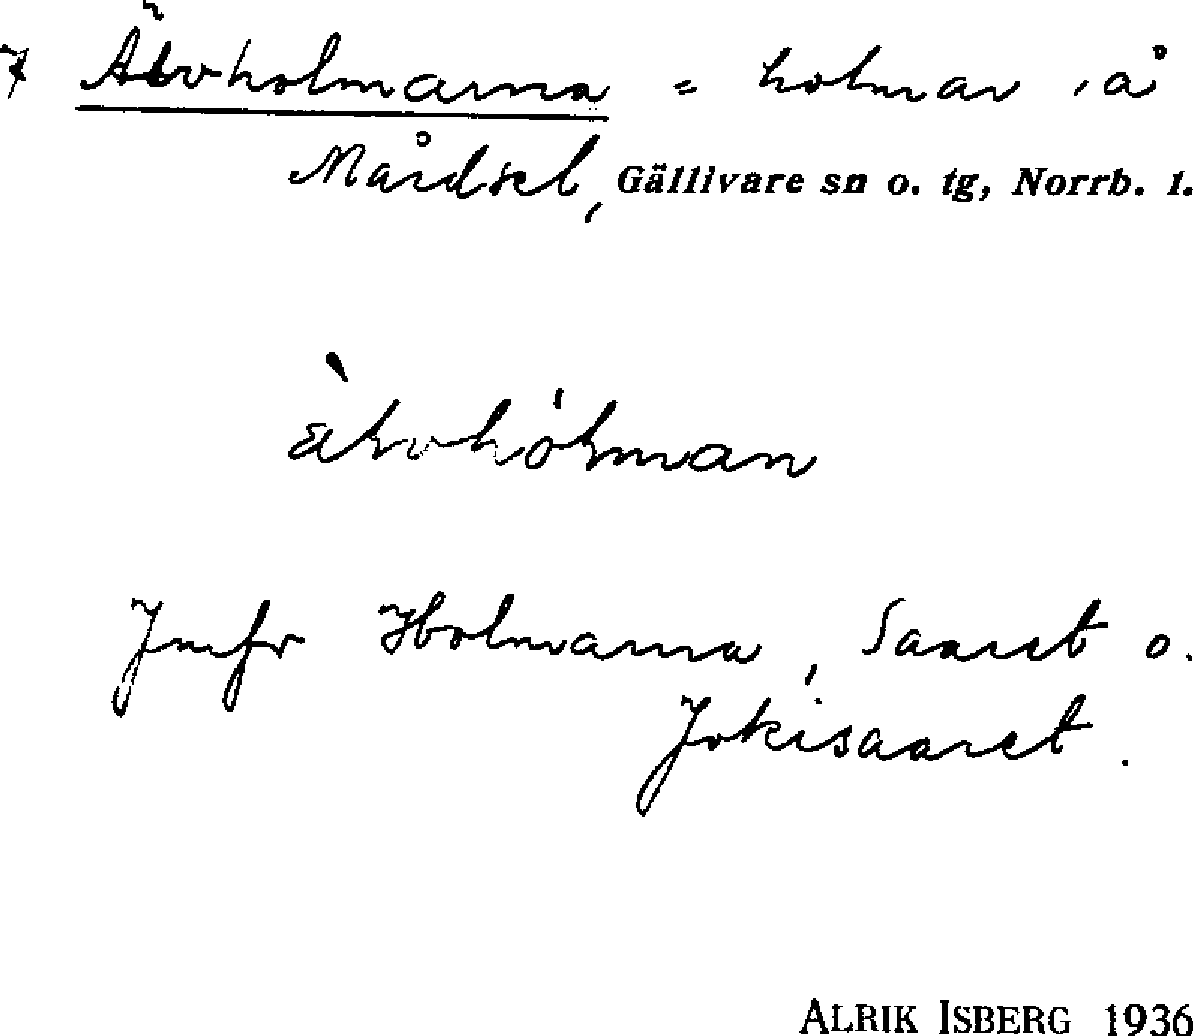 7 Älvholmarna = holmar i å
Mårdsel, Gällivare sn o. tg, Norrb. l.
àlvhólman
Jmfr Holmarna, Saaret o.
Jokisaaret.
ALRIK ISBERG 1936